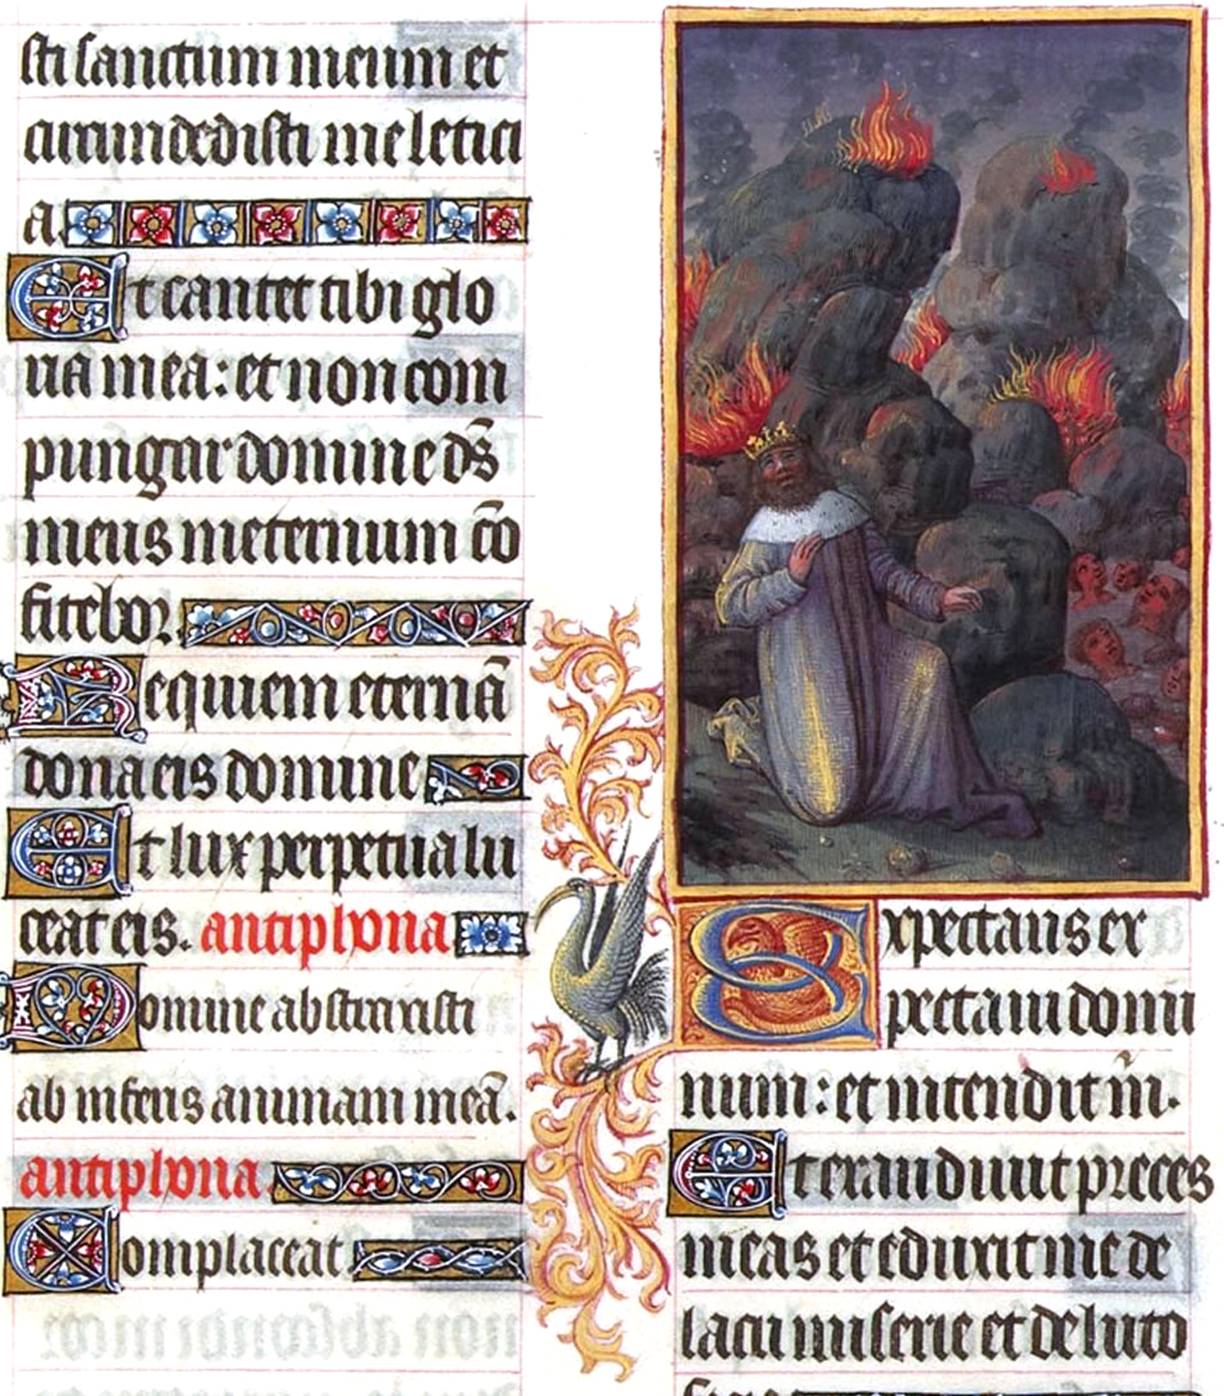 sti sanctum meum et
circundedisti me letici
a.
Et cantet tibi glo
ria mea: et non com
pungar domine ds̄
meus in eternum cō
fitebor.
Requiem eternā
dona eis domine
Et lux perpetua lu
ceat eis. antiphona
Domine abstraxisti
ab inferis animam meā.
antiphona
Complaceat
Expectans ex
pectavi domi
num: et intendit m̄.
Et exaudivit preces
meas et eduxit me de
lacu miserie et de luto